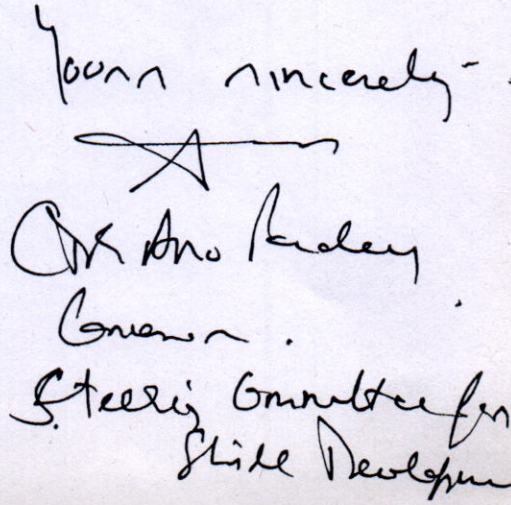 Yours sincerely
Pandey
Convenor.
Steering Committee for
Skill Developm